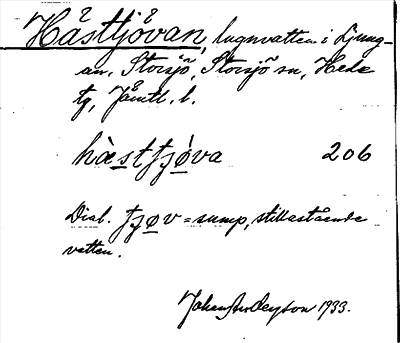 Håstjövan, lugnvatten i Ljung-
an, Storsjö, Storsjö sn, Hede
tg, Jämtl. l.
hàstfjøva 206
Dial. fjøv = sump, stillastående
vatten.
Johan 1933.